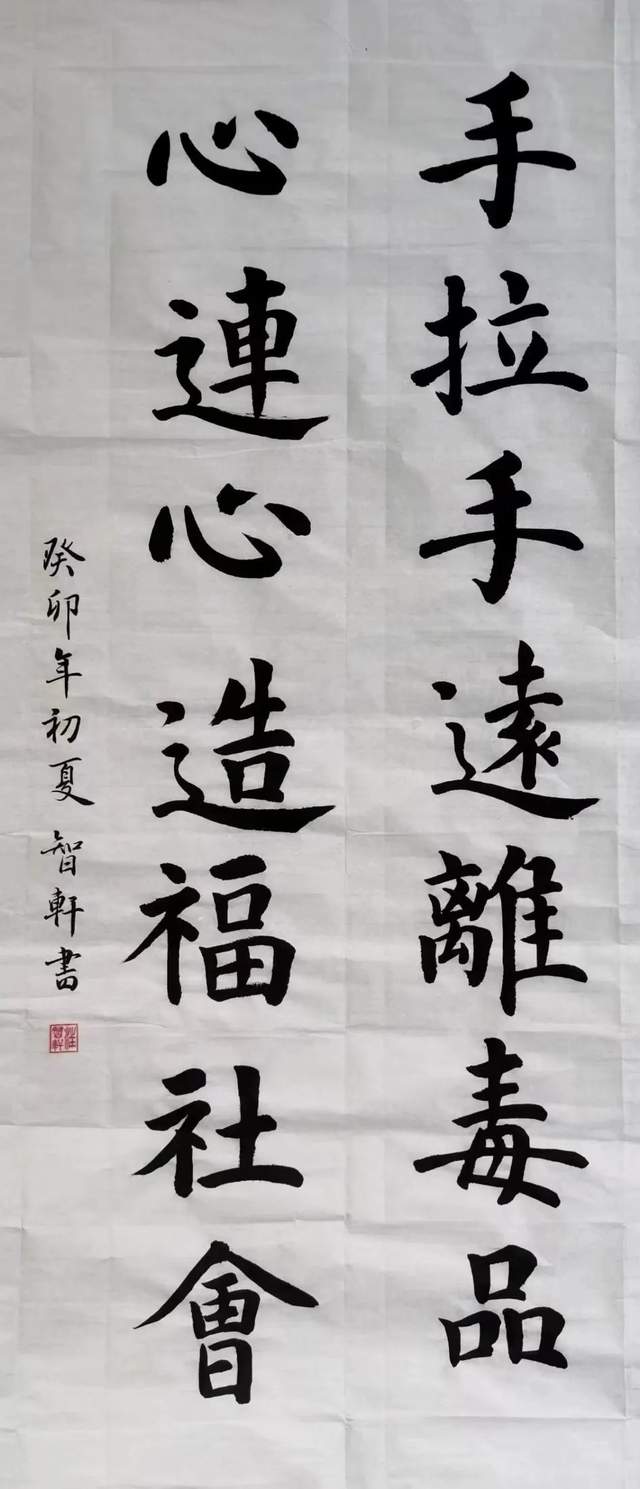 手拉手遠離毒品
心連心造福社會
癸卯年初夏 智軒書